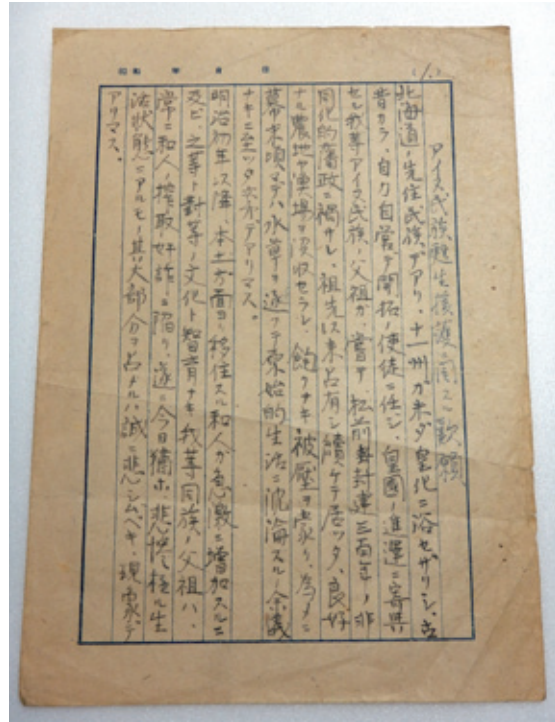 昭和 年 月 日
アイヌ民族更生援護ニ関スル歎願
北海道ノ先住民族デアリ、十一州ガ未ダ皇化ニ浴セザリシ、古
昔カラ、自力自営ヲ開拓ノ使徒ニ任ジ、皇国ノ進運ニ寄与
セル我等アイヌ民族ノ父祖ガ、嘗テ、松前封建三百年ノ非
同化的藩政ニ禍サレ、祖先以来占有シ続ケテ居ッタ、良好
ナル農地ヤ漁場ヲ没収セラレ、飽クナキ被壓ヲ蒙リ、為メニ
幕末頃マデハ水草ヲ逐フテ原始的生活ニ沈淪スルノ余儀
ナキニ至ッタ次第デアリマス。
明治初年以降、本土方面ヨリ移住スル和人ガ急激ニ増加スルニ
及ビ、之等ト対等ノ文化ト智育ナキ我等同族ノ父祖ハ、
常ニ和人ノ搾取奸詐ニ陥リ、遂ニ今日猶ホ、悲惨極ル生
活状態ニアルモノ其ノ大部分ヲ占メルハ誠ニ悲シムベキ、現象デ
アリマス。